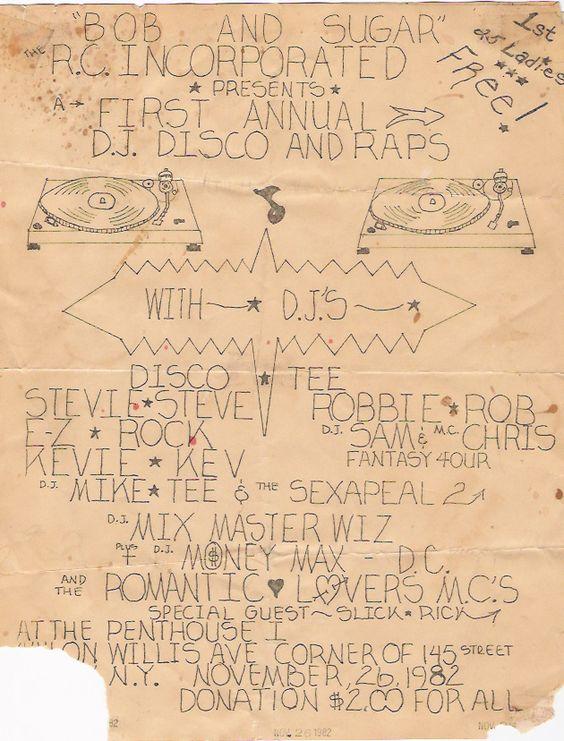 "BOB AND SUGAR"
THE R.C. INCORPORATED
PRESENTS
A FIRST ANNUAL
D.J. DISCO AND RAPS
1st
25 Ladies
FREE!
WITH D.J.'S
DISCO TEE
STEVIE STEVE
E-Z ROCK
KEVIE KEV
ROBBIE ROB
D.J. SAM & M.C. CHRIS
FANTASY 4OUR
D.J. MIKE TEE & THE SEXAPEAL 2
D.J. MIX MASTER WIZ
PLUS D.J. MONEY MAX - D.C.
AND THE ROMANTIC LOVERS M.C.'S
SPECIAL GUEST~ SLICK RICK
AT THE PENTHOUSE I
ON WILLIS AVE CORNER OF 145 STREET
N.Y. NOVEMBER, 26, 1982
DONATION $2.00 FOR ALL
82
NOV 26 1982
NOV